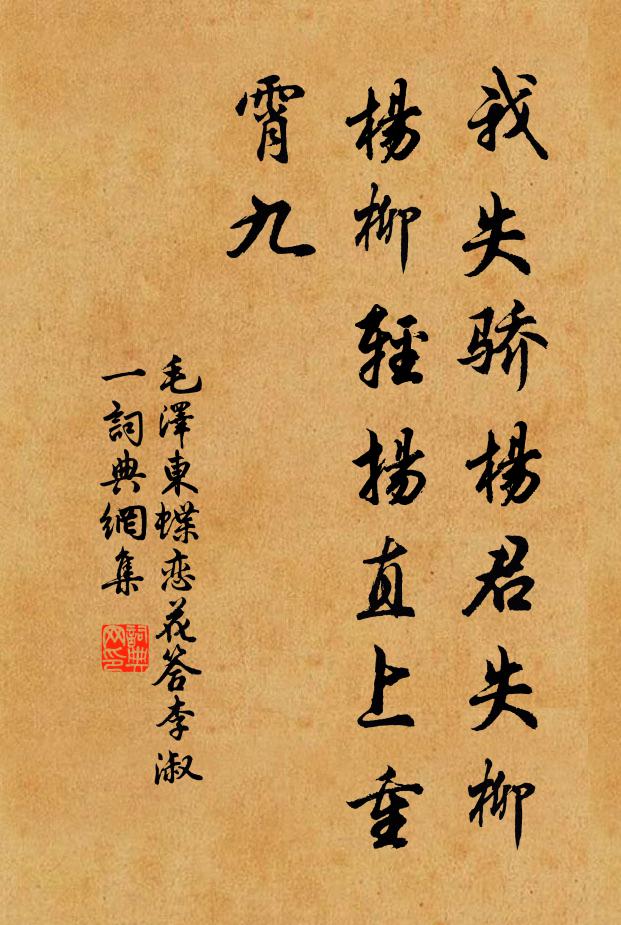 我失骄楊君失柳
楊柳輕揚直上重
霄九
毛澤東蝶恋花答李淑
一詞典網集
詞典
网印